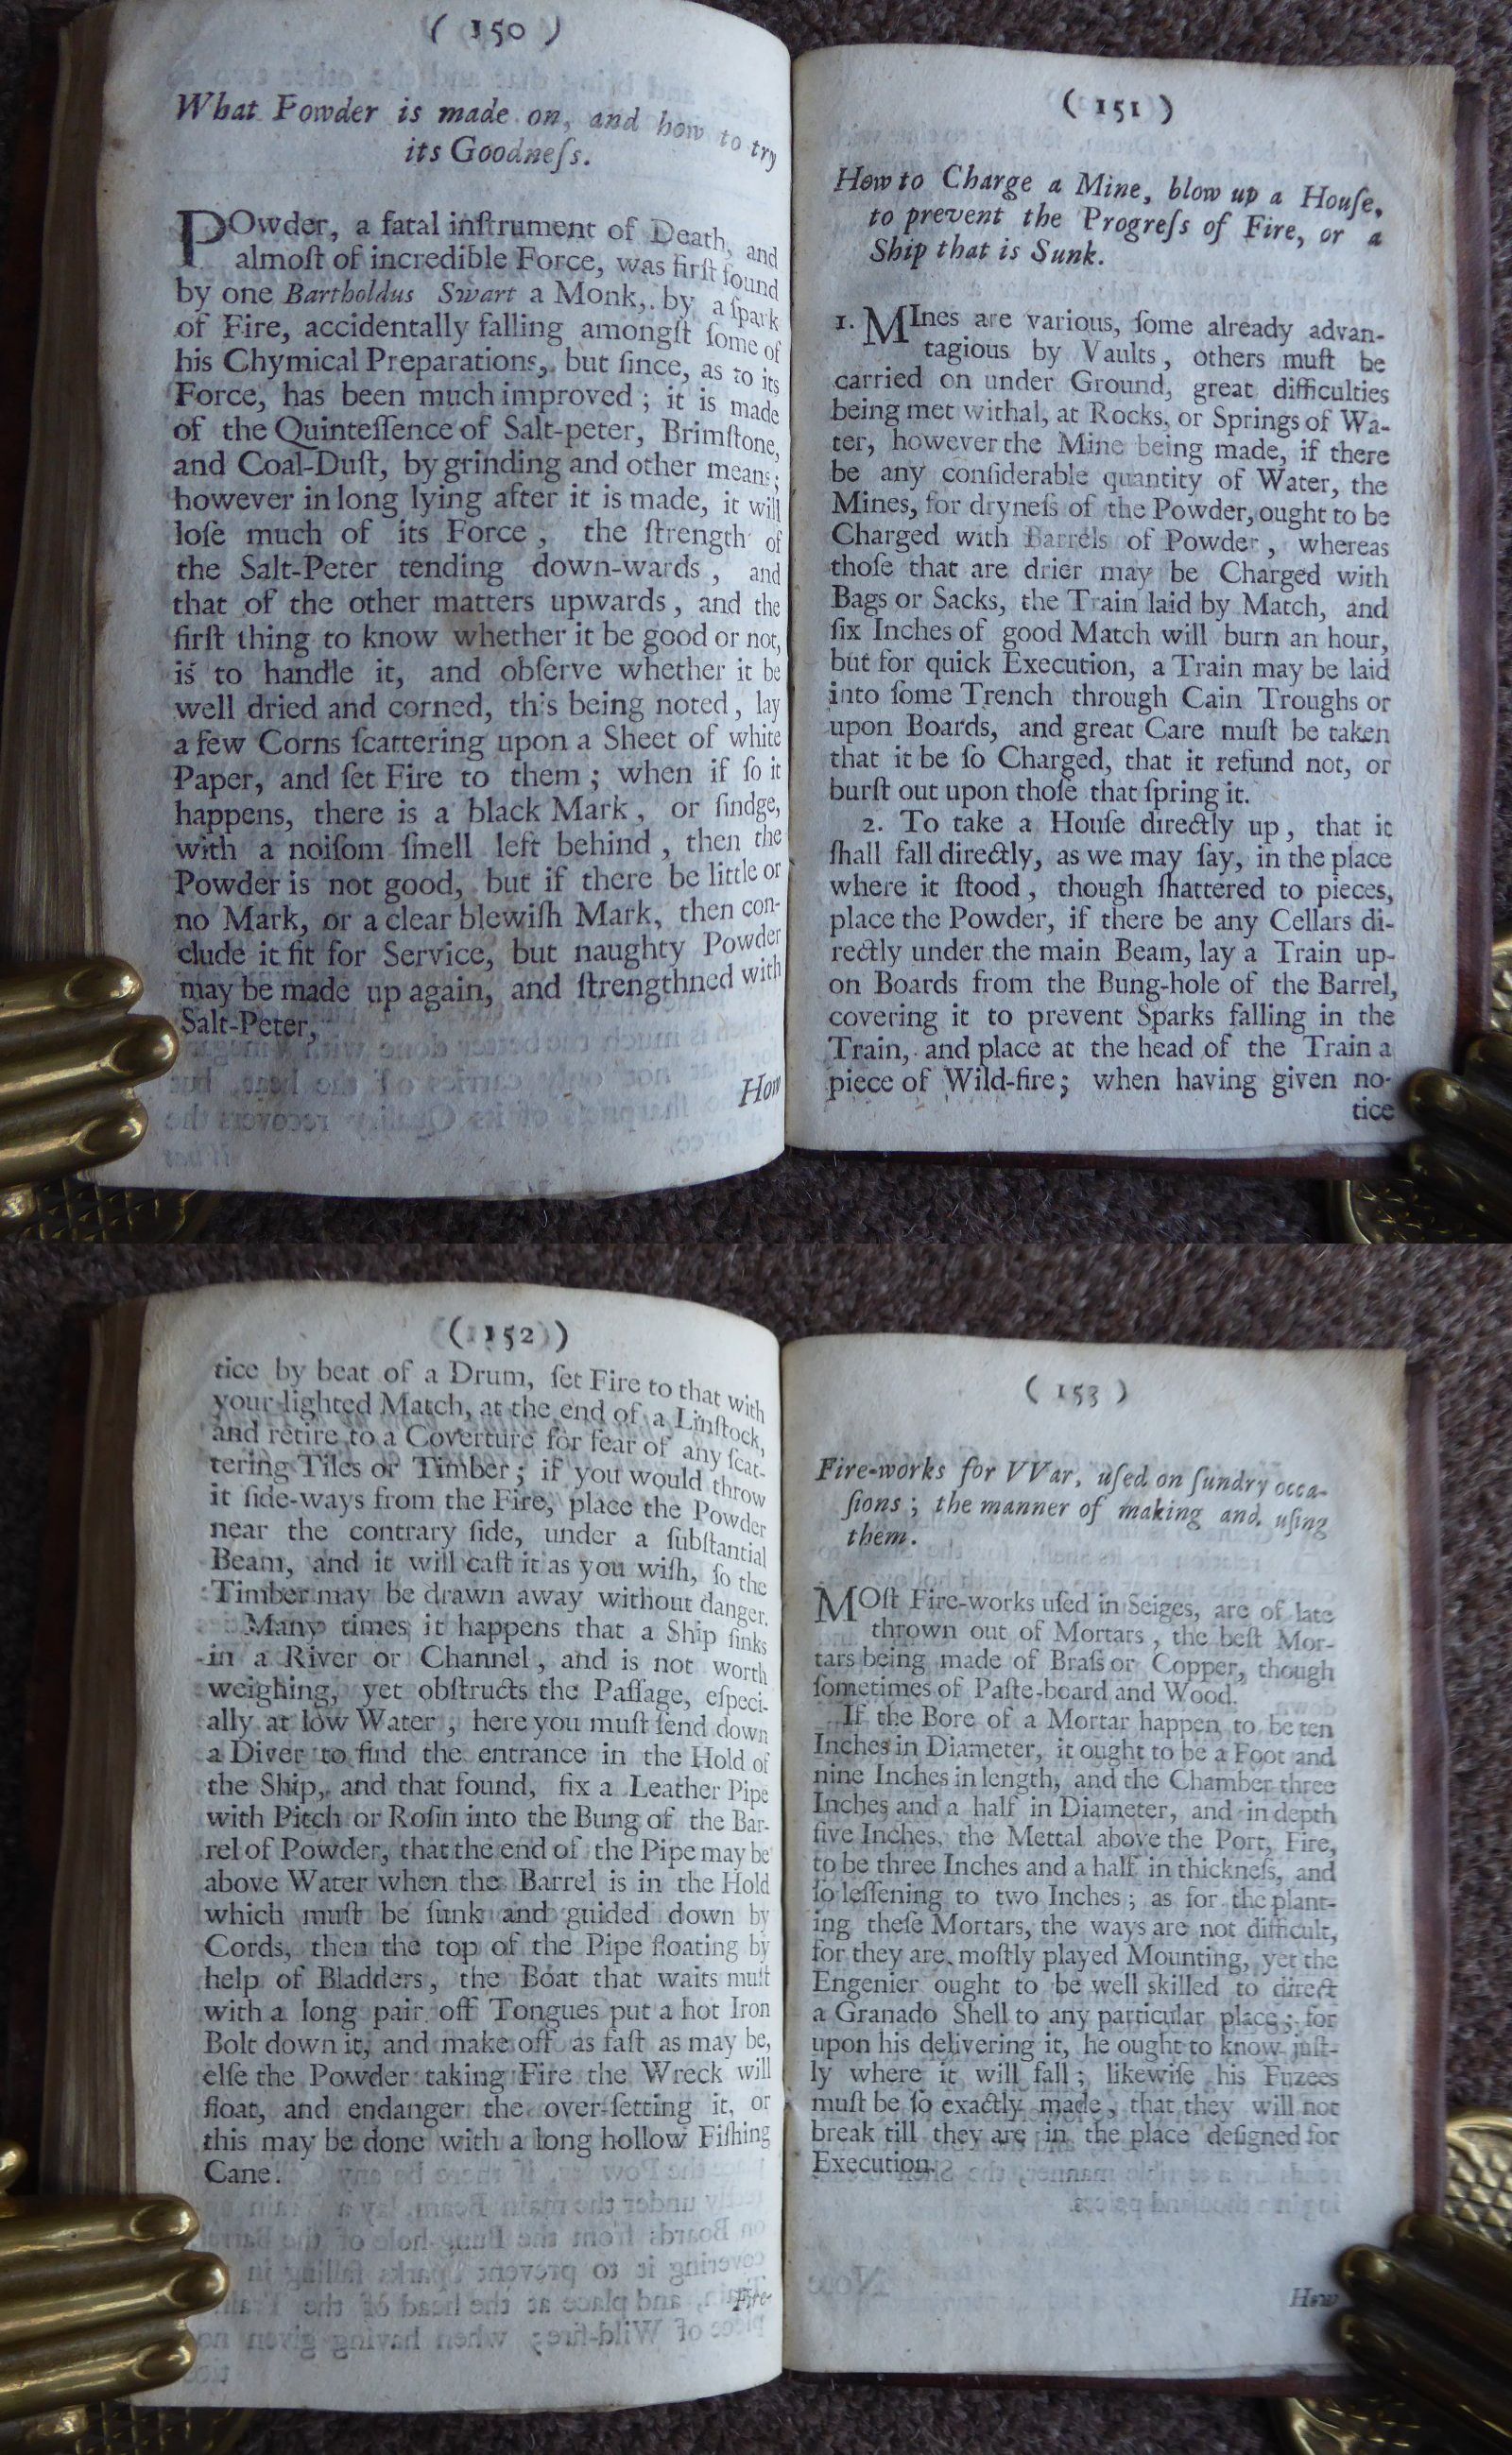 ( 150 )
What Powder is made on, and how to try
its Goodneſs.
POwder, a fatal inſtrument of Death, and
almoſt of incredible Force, was firſt found
by one Bartholdus Swart a Monk, by a ſpark
of Fire, accidentally falling amongſt ſome of
his Chymical Preparations, but ſince, as to its
Force, has been much improved ; it is made
of the Quinteſſence of Salt-peter, Brimſtone,
and Coal-Duſt, by grinding and other means ;
however in long lying after it is made, it will
loſe much of its Force , the ſtrength of
the Salt-Peter tending down-wards , and
that of the other matters upwards , and the
firſt thing to know whether it be good or not,
is to handle it, and obſerve whether it be
well dried and corned, this being noted , lay
a few Corns ſcattering upon a Sheet of white
Paper, and ſet Fire to them ; when if ſo it
happens, there is a black Mark , or ſindge,
with a noiſom ſmell left behind , then the
Powder is not good, but if there be little or
no Mark, or a clear blewiſh Mark, then con-
clude it fit for Service, but naughty Powder
may be made up again, and ſtrengthned with
Salt-Peter,
How
( 151 )
How to Charge a Mine, blow up a Houſe,
to prevent the Progreſs of Fire, or a
Ship that is Sunk.
1. MInes are various, ſome already advan-
tagious by Vaults , others muſt be
carried on under Ground, great difficulties
being met withal, at Rocks, or Springs of Wa-
ter, however the Mine being made, if there
be any conſiderable quantity of Water, the
Mines, for dryneſs of the Powder, ought to be
Charged with Barrels of Powder , whereas
thoſe that are drier may be Charged with
Bags or Sacks, the Train laid by Match, and
ſix Inches of good Match will burn an hour,
but for quick Execution, a Train may be laid
into ſome Trench through Cain Troughs or
upon Boards, and great Care muſt be taken
that it be ſo Charged, that it refund not, or
burſt out upon thoſe that ſpring it.
2. To take a Houſe directly up , that it
ſhall fall directly, as we may ſay, in the place
where it ſtood , though ſhattered to pieces,
place the Powder, if there be any Cellars di-
rectly under the main Beam, lay a Train up-
on Boards from the Bung-hole of the Barrel,
covering it to prevent Sparks falling in the
Train, and place at the head of the Train a
piece of Wild-fire; when having given no-
tice
( 152 )
tice by beat of a Drum, ſet Fire to that with
your lighted Match, at the end of a Linſtock,
and retire to a Coverture for fear of any ſcat-
tering Tiles or Timber ; if you would throw
it ſide-ways from the Fire, place the Powder
near the contrary ſide, under a ſubſtantial
Beam, and it will caſt it as you wiſh, ſo the
Timber may be drawn away without danger.
Many times it happens that a Ship ſinks
in a River or Channel , and is not worth
weighing, yet obſtructs the Paſſage, eſpeci-
ally at low Water , here you muſt ſend down
a Diver to find the entrance in the Hold of
the Ship, and that found, fix a Leather Pipe
with Pitch or Roſin into the Bung of the Bar-
rel of Powder, that the end of the Pipe may be
above Water when the Barrel is in the Hold
which muſt be ſunk and guided down by
Cords, then the top of the Pipe floating by
help of Bladders , the Boat that waits muſt
with a long pair off Tongues put a hot Iron
Bolt down it, and make off as faſt as may be,
elſe the Powder taking Fire the Wreck will
float, and endanger the over-ſetting it, or
this may be done with a long hollow Fiſhing
Cane.
Fire-
( 153 )
Fire-works for VVar, uſed on ſundry occa-
ſions ; the manner of making and uſing
them.
MOſt Fire-works uſed in Seiges, are of late
thrown out of Mortars , the beſt Mor-
tars being made of Braſs or Copper, though
ſometimes of Paſte-board and Wood.
If the Bore of a Mortar happen to be ten
Inches in Diameter, it ought to be a Foot and
nine Inches in length, and the Chamber three
Inches and a half in Diameter, and in depth
five Inches, the Mettal above the Port, Fire,
to be three Inches and a half in thickneſs, and
ſo leſſening to two Inches ; as for the plant-
ing theſe Mortars, the ways are not difficult,
for they are moſtly played Mounting, yet the
Engenier ought to be well skilled to direct
a Granado Shell to any particular place ; for
upon his delivering it, he ought to know juſt-
ly where it will fall ; likewiſe his Fuzees
muſt be ſo exactly made , that they will not
break till they are in the place deſigned for
Execution.
How